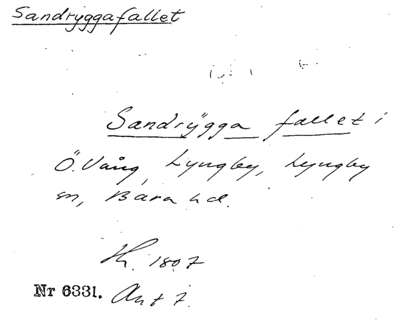 Sandryggafallet
Sandrÿgga fallet i
Ö. Vång, Lyngby, Lyngby
sn, Bara hd.
1807
Nr 6331. Ant 7.